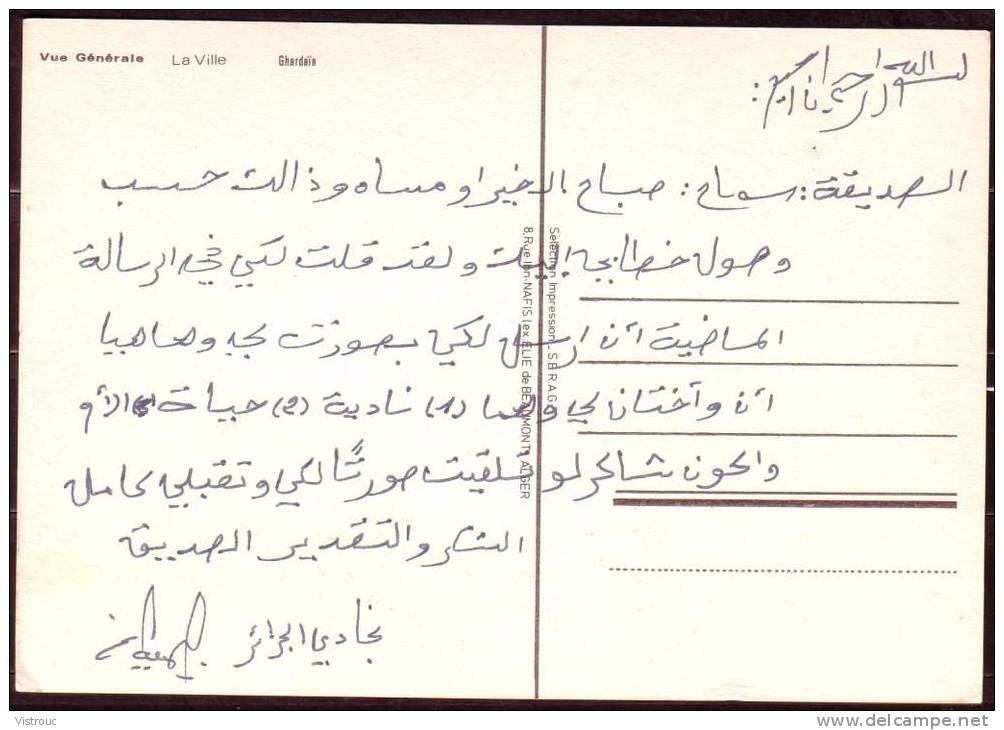 Vue Générale La Ville Ghardaïa
الصديقة: سماح: صباح الاخير او مساه وذالك حسب
وصول خطابي إليك ولقد قلت لكي في الرسالة
الماضية أن ارسل لكي بصورت لي وهاهيا
أن وآختان لي وهما (1) نادية (2) حياة الأم
واكون شاكر لو تلقيت صورتا لكي وتقبلي كامل
الشكر والتقدير الصديق
الجزائر
Selection Impression - S.B.R.A.G.
8, Rue Ibn-NAFIS (ex. ELIE de BEAUMONT) ALGER
Vistrouc
www.delcampe.net